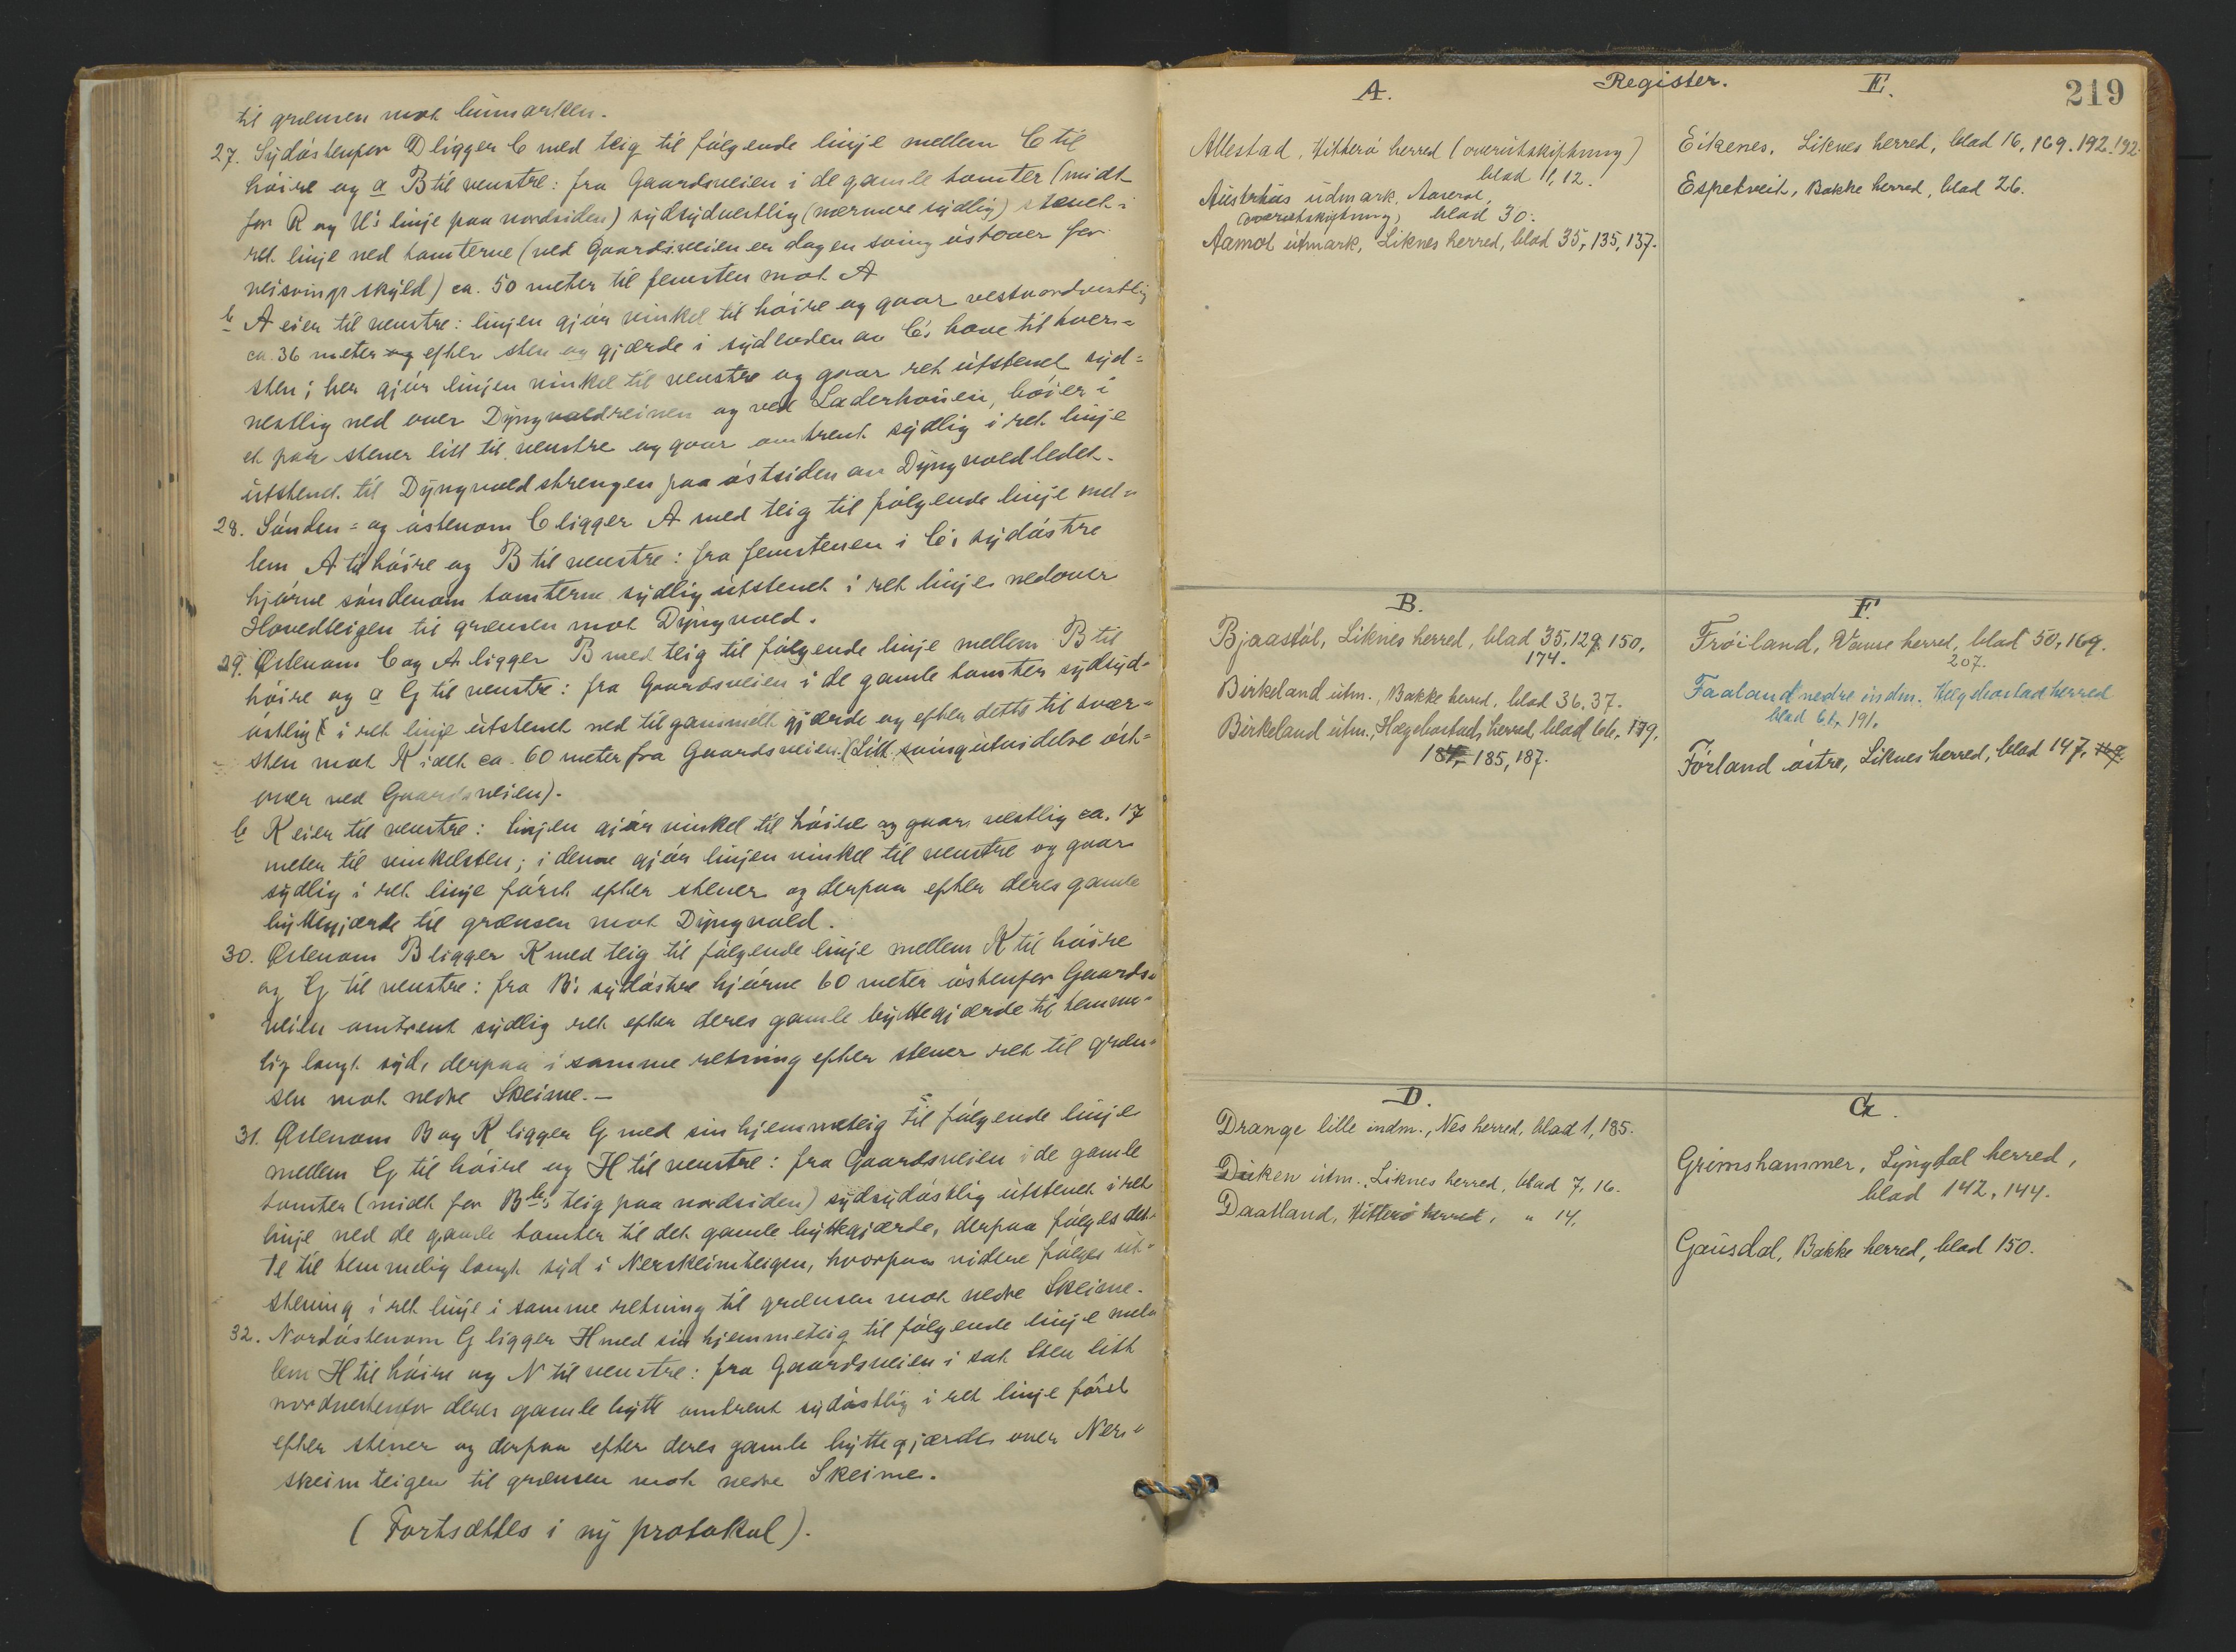 til grænsen mot lunmarken.
27. Sydøstenfor D ligger C med teig til følgende linje mellem C til
høire og a B til venstre: fra Gaardsveien i de gamle tomter (midt
for R og U's linje paa nordsiden) sydsydvestlig (nærmere sydlig) stenet i
ret linje ned tomterne (ved Gaardsveien er dog en sving østover for
veisvings skyld) ca. 50 meter til femsten mot A
b A eier til venstre: linjen gjør vinkel til høire og gaar vestnordvestlig
ca. 36 meter og efter sten og gjærde i sydenden av C's have til tver=
sten; her gjør linjen vinkel til venstre og gaar ret utstenet syd=
vestlig ned over Dyngvoldreinen og ved Laderhouen, bøier i
et par stener litt til venstre og gaar omtrent sydlig i ret linje
utstenet til Dyngvoldstrengen paa østsiden av Dyngvoldledet.
28. Sønden= og østenom C ligger A med teig til følgende linje mel=
lem A til høire og B til venstre: fra femstenen i C's sydøstre
hjørne søndenom tomterne sydlig utstenet i ret linje nedover
Hovedteigen til grænsen mot Dyngvold.
29. Østenom C og A ligger B med teig til følgende linje mellem B til
høire og a G til venstre: fra Gaardsveien i de gamle tomter sydsyd=
østlig i ret linje utstenet ned til gammelt gjærde og efter dette til tver=
sten mot K ialt ca. 60 meter fra Gaardsveien. (Litt svingutvidelse øst=
over ved Gaardsveien).
b K eier til venstre: linjen gjør vinkel til høire og gaar vestlig ca. 17
meter til vinkelsten; i denne gjør linjen vinkel til venstre og gaar
sydlig i ret linje først efter stener og derpaa efter deres gamle
byttegjærde til grænsen mot Dyngvold.
30. Østenom B ligger K med teig til følgende linje mellem K til høire
og G til venstre: fra B's sydøstre hjørne 60 meter østenfor Gaards=
veien omtrent sydlig ret efter deres gamle byttegjærde til temme=
lig langt syd, derpaa i samme retning efter stener ret til græn=
sen mot nedre Skeime.—
31. Østenom B og K ligger G med sin hjemmeteig til følgende linje
mellem G til høire og H til venstre: fra Gaardsveien i de gamle
tomter (midt for B b's teig paa nordsiden) sydsydøstlig utstenet i ret
linje ned de gamle tomter til det gamle byttegjærde, derpaa følges det=
te til temmelig langt syd i Nerskeimteigen, hvorpaa videre følges ut=
stening i ret linje i samme retning til grænsen mot nedre Skeime.
32. Nordøstenom G ligger H med sin hjemmeteig til følgende linje mel=
lem H til høire og N til venstre: fra Gaardsveien i sat sten litt
nordvestenfor deres gamle bytte omtrent sydøstlig i ret linje først
efter stener og derpaa efter deres gamle byttegjærde over Ner=
skeimteigen til grænsen mot nedre Skeime.
(Fortsættes i ny protokol).
Register.
219
A.
Allestad, Hitterø herred (overutskiftning)
blad 11, 12.
Austrhus udmark, Aaseral,
overutskiftning, blad 30.
Aamot utmark, Liknes herred, blad 35, 135, 137.
E.
Eikenes, Liknes herred, blad 16, 169. 192. 192.
Espetveit, Bakke herred, blad 26.
B.
Bjaastøl, Liknes herred, blad 35, 129, 150,
174.
Birkeland utm., Bakke herred, blad 36, 37.
Birkeland utm., Hægebostads herred, blad 66, 179,
184, 185, 187.
F.
Frøiland, Vanse herred, blad 50, 169.
207.
Faaland nedre indm. Hægebostad herred
blad 61, 191.
Førland østre, Liknes herred, blad 147,
D.
Drange lille indm., Nes herred, blad 1, 185.
Duken utm., Liknes herred, blad 7, 16.
Daatland, Hitterø herred, " 14,
G.
Grimshammer, Lyngdal herred,
blad 142, 144.
Gausdal, Bakke herred, blad 150.